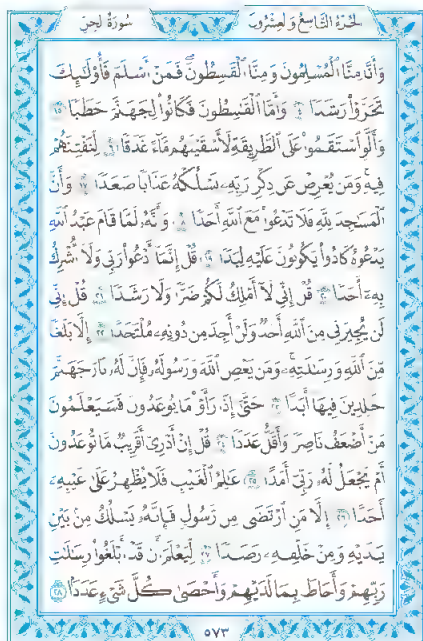 الجزء التاسع والعشرون سورة الجن
وَأَنَّا مِنَّا الْمُسْلِمُونَ وَمِنَّا الْقَاسِطُونَ فَمَنْ أَسْلَمَ فَأُولَٰئِكَ
تَحَرَّوْا رَشَدًا ١٤ وَأَمَّا الْقَاسِطُونَ فَكَانُوا لِجَهَنَّمَ حَطَبًا ١٥
وَأَلَّوِ اسْتَقَامُوا عَلَى الطَّرِيقَةِ لَأَسْقَيْنَاهُم مَّاءً غَدَقًا ١٦ لِّنَفْتِنَهُمْ
فِيهِ وَمَن يُعْرِضْ عَن ذِكْرِ رَبِّهِ يَسْلُكْهُ عَذَابًا صَعَدًا ١٧ وَأَنَّ
الْمَسَاجِدَ لِلَّهِ فَلَا تَدْعُوا مَعَ اللَّهِ أَحَدًا ١٨ وَأَنَّهُ لَمَّا قَامَ عَبْدُ اللَّهِ
يَدْعُوهُ كَادُوا يَكُونُونَ عَلَيْهِ لِبَدًا ١٩ قُلْ إِنَّمَا أَدْعُو رَبِّي وَلَا أُشْرِكُ
بِهِ أَحَدًا ٢٠ قُلْ إِنِّي لَا أَمْلِكُ لَكُمْ ضَرًّا وَلَا رَشَدًا ٢١ قُلْ إِنِّي
لَن يُجِيرَنِي مِنَ اللَّهِ أَحَدٌ وَلَنْ أَجِدَ مِن دُونِهِ مُلْتَحَدًا ٢٢ إِلَّا بَلَاغًا
مِّنَ اللَّهِ وَرِسَالَاتِهِ وَمَن يَعْصِ اللَّهَ وَرَسُولَهُ فَإِنَّ لَهُ نَارَ جَهَنَّمَ
خَالِدِينَ فِيهَا أَبَدًا ٢٣ حَتَّىٰ إِذَا رَأَوْا مَا يُوعَدُونَ فَسَيَعْلَمُونَ
مَنْ أَضْعَفُ نَاصِرًا وَأَقَلُّ عَدَدًا ٢٤ قُلْ إِنْ أَدْرِي أَقَرِيبٌ مَّا تُوعَدُونَ
أَمْ يَجْعَلُ لَهُ رَبِّي أَمَدًا ٢٥ عَالِمُ الْغَيْبِ فَلَا يُظْهِرُ عَلَىٰ غَيْبِهِ
أَحَدًا ٢٦ إِلَّا مَنِ ارْتَضَىٰ مِن رَّسُولٍ فَإِنَّهُ يَسْلُكُ مِن بَيْنِ
يَدَيْهِ وَمِنْ خَلْفِهِ رَصَدًا ٢٧ لِّيَعْلَمَ أَن قَدْ أَبْلَغُوا رِسَالَاتِ
رَبِّهِمْ وَأَحَاطَ بِمَا لَدَيْهِمْ وَأَحْصَىٰ كُلَّ شَيْءٍ عَدَدًا ٢٨
٥٧٣